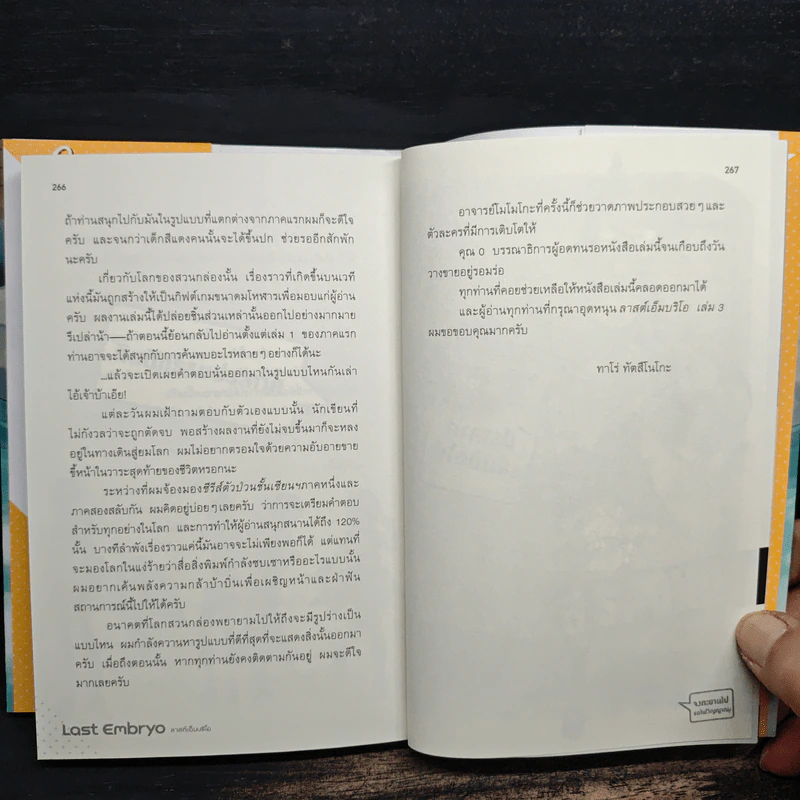 266
ถ้าท่านสนุกไปกับมันในรูปแบบที่แตกต่างจากภาคแรกผมก็จะดีใจ
ครับ และจนกว่าเด็กสีแดงคนนั้นจะได้ขึ้นปก ช่วยรออีกสักพัก
นะครับ
เกี่ยวกับโลกของสวนกล่องนั้น เรื่องราวที่เกิดขึ้นบนเวที
แห่งนี้มันถูกสร้างให้เป็นกิฟต์เกมขนาดมโหฬารเพื่อมอบแก่ผู้อ่าน
ครับ ผลงานเล่มนี้ได้ปล่อยชิ้นส่วนเหล่านั้นออกไปอย่างมากมาย
รีเปล่าน้า—–ถ้าตอนนี้ย้อนกลับไปอ่านตั้งแต่เล่ม 1 ของภาคแรก
ท่านอาจจะได้สนุกกับการค้นพบอะไรหลายๆ อย่างก็ได้นะ
...แล้วจะเปิดเผยคำตอบนั่นออกมาในรูปแบบไหนกันเล่า
ไอ้เจ้าบ้าเอ๊ย!
แต่ละวันผมเฝ้าถามตอบกับตัวเองแบบนั้น นักเขียนที่
ไม่กังวลว่าจะถูกตัดจบ พอสร้างผลงานที่ยังไม่จบขึ้นมาก็จะหลง
อยู่ในทางเดินสู่ยมโลก ผมไม่อยากตรอมใจด้วยความอับอายขาย
ขี้หน้าในวาระสุดท้ายของชีวิตหรอกนะ
ระหว่างที่ผมจ้องมองซีรีส์ตัวป่วนชั้นเซียนฯภาคหนึ่งและ
ภาคสองสลับกัน ผมคิดอยู่บ่อยๆ เลยครับ ว่าการจะเตรียมคำตอบ
สำหรับทุกอย่างในโลก และการทำให้ผู้อ่านสนุกสนานได้ถึง 120%
นั้น บางทีลำพังเรื่องราวแค่นี้มันอาจจะไม่เพียงพอก็ได้ แต่แทนที่
จะมองโลกในแง่ร้ายว่าสื่อสิ่งพิมพ์กำลังซบเซาหรืออะไรแบบนั้น
ผมอยากเค้นพลังความกล้าบ้าบิ่นเพื่อเผชิญหน้าและฝ่าฟัน
สถานการณ์นี้ไปให้ได้ครับ
อนาคตที่โลกสวนกล่องพยายามไปให้ถึงจะมีรูปร่างเป็น
แบบไหน ผมกำลังควานหารูปแบบที่ดีที่สุดที่จะแสดงสิ่งนั้นออกมา
ครับ เมื่อถึงตอนนั้น หากทุกท่านยังคงติดตามกันอยู่ ผมจะดีใจ
มากเลยครับ
Last Embryo ลาสต์เอ็มบริโอ
267
อาจารย์โมโมโกะที่ครั้งนี้ก็ช่วยวาดภาพประกอบสวยๆ และ
ตัวละครที่มีการเติบโตให้
คุณ O บรรณาธิการผู้อดทนรอหนังสือเล่มนี้จนเกือบถึงวัน
วางขายอยู่รอมร่อ
ทุกท่านที่คอยช่วยเหลือให้หนังสือเล่มนี้คลอดออกมาได้
และผู้อ่านทุกท่านที่กรุณาอุดหนุน ลาสต์เอ็มบริโอ เล่ม 3
ผมขอขอบคุณมากครับ
ทาโร่ ทัตสึโนโกะ
จงทะยานไป